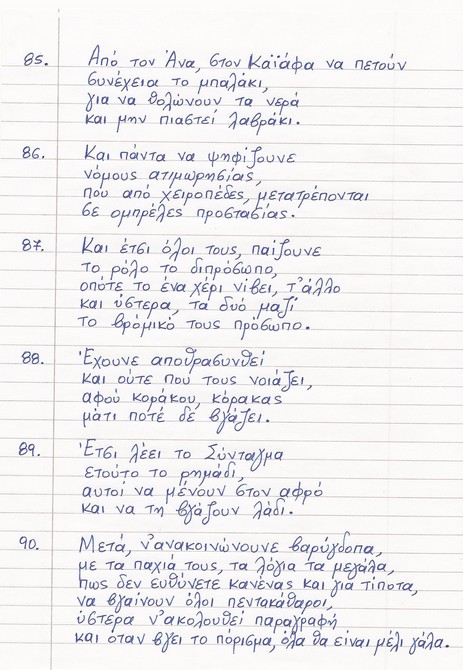 85. Από τον Άνα, στον Καϊάφα να πετούν
συνέχεια το μπαλάκι,
για να θολώνουν τα νερά
και μην πιαστεί λαβράκι.
86. Και πάντα να ψηφίζουνε
νόμους ατιμωρησίας,
που από χειροπέδες, μετατρέπονται
σε ομπρέλες προστασίας.
87. Και έτσι όλοι τους, παίζουνε
το ρόλο το διπρόσωπο,
οπότε το ένα χέρι νίβει, τ'άλλο
και ύστερα, τα δυό μαζί
το βρόμικό τους πρόσωπο.
88. Έχουνε αποθρασυνθεί
και ούτε που τους νοιάζει,
αφού κοράκου, κόρακας
μάτι ποτέ δέ βγάζει.
89. Έτσι λέει το Σύνταγμα
ετούτο το ρημάδι,
αυτοί να μένουν στον αφρό
και να τη βγάζουν λάδι.
90. Μετά, ν'ανακοινώνουνε βαρύγδοπα,
με τα παχιά τους, τα λόγια τα μεγάλα,
πως δεν ευθύνετε κανένας και για τίποτα,
να βγαίνουν όλοι πεντακάθαροι,
ύστερα ν'ακολουθεί παραγραφή
και όταν βγει το πόρισμα, όλα θα είναι μέλι γάλα.